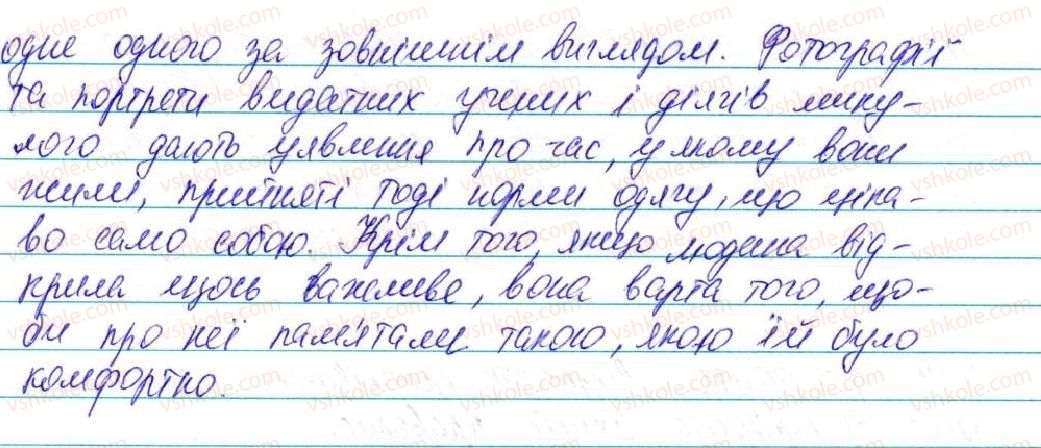 одне одного за зовнішнім виглядом. Фотографії
та портрети видатних учених і діячів мину-
лого дають уявлення про час, у якому вони
жили, прийняті тоді норми одягу, що ціка-
во само собою. Крім того, якщо людина від-
крила щось важливе, вона варта того, що-
би про неї пам'ятали такою, якою їй було
комфортно.